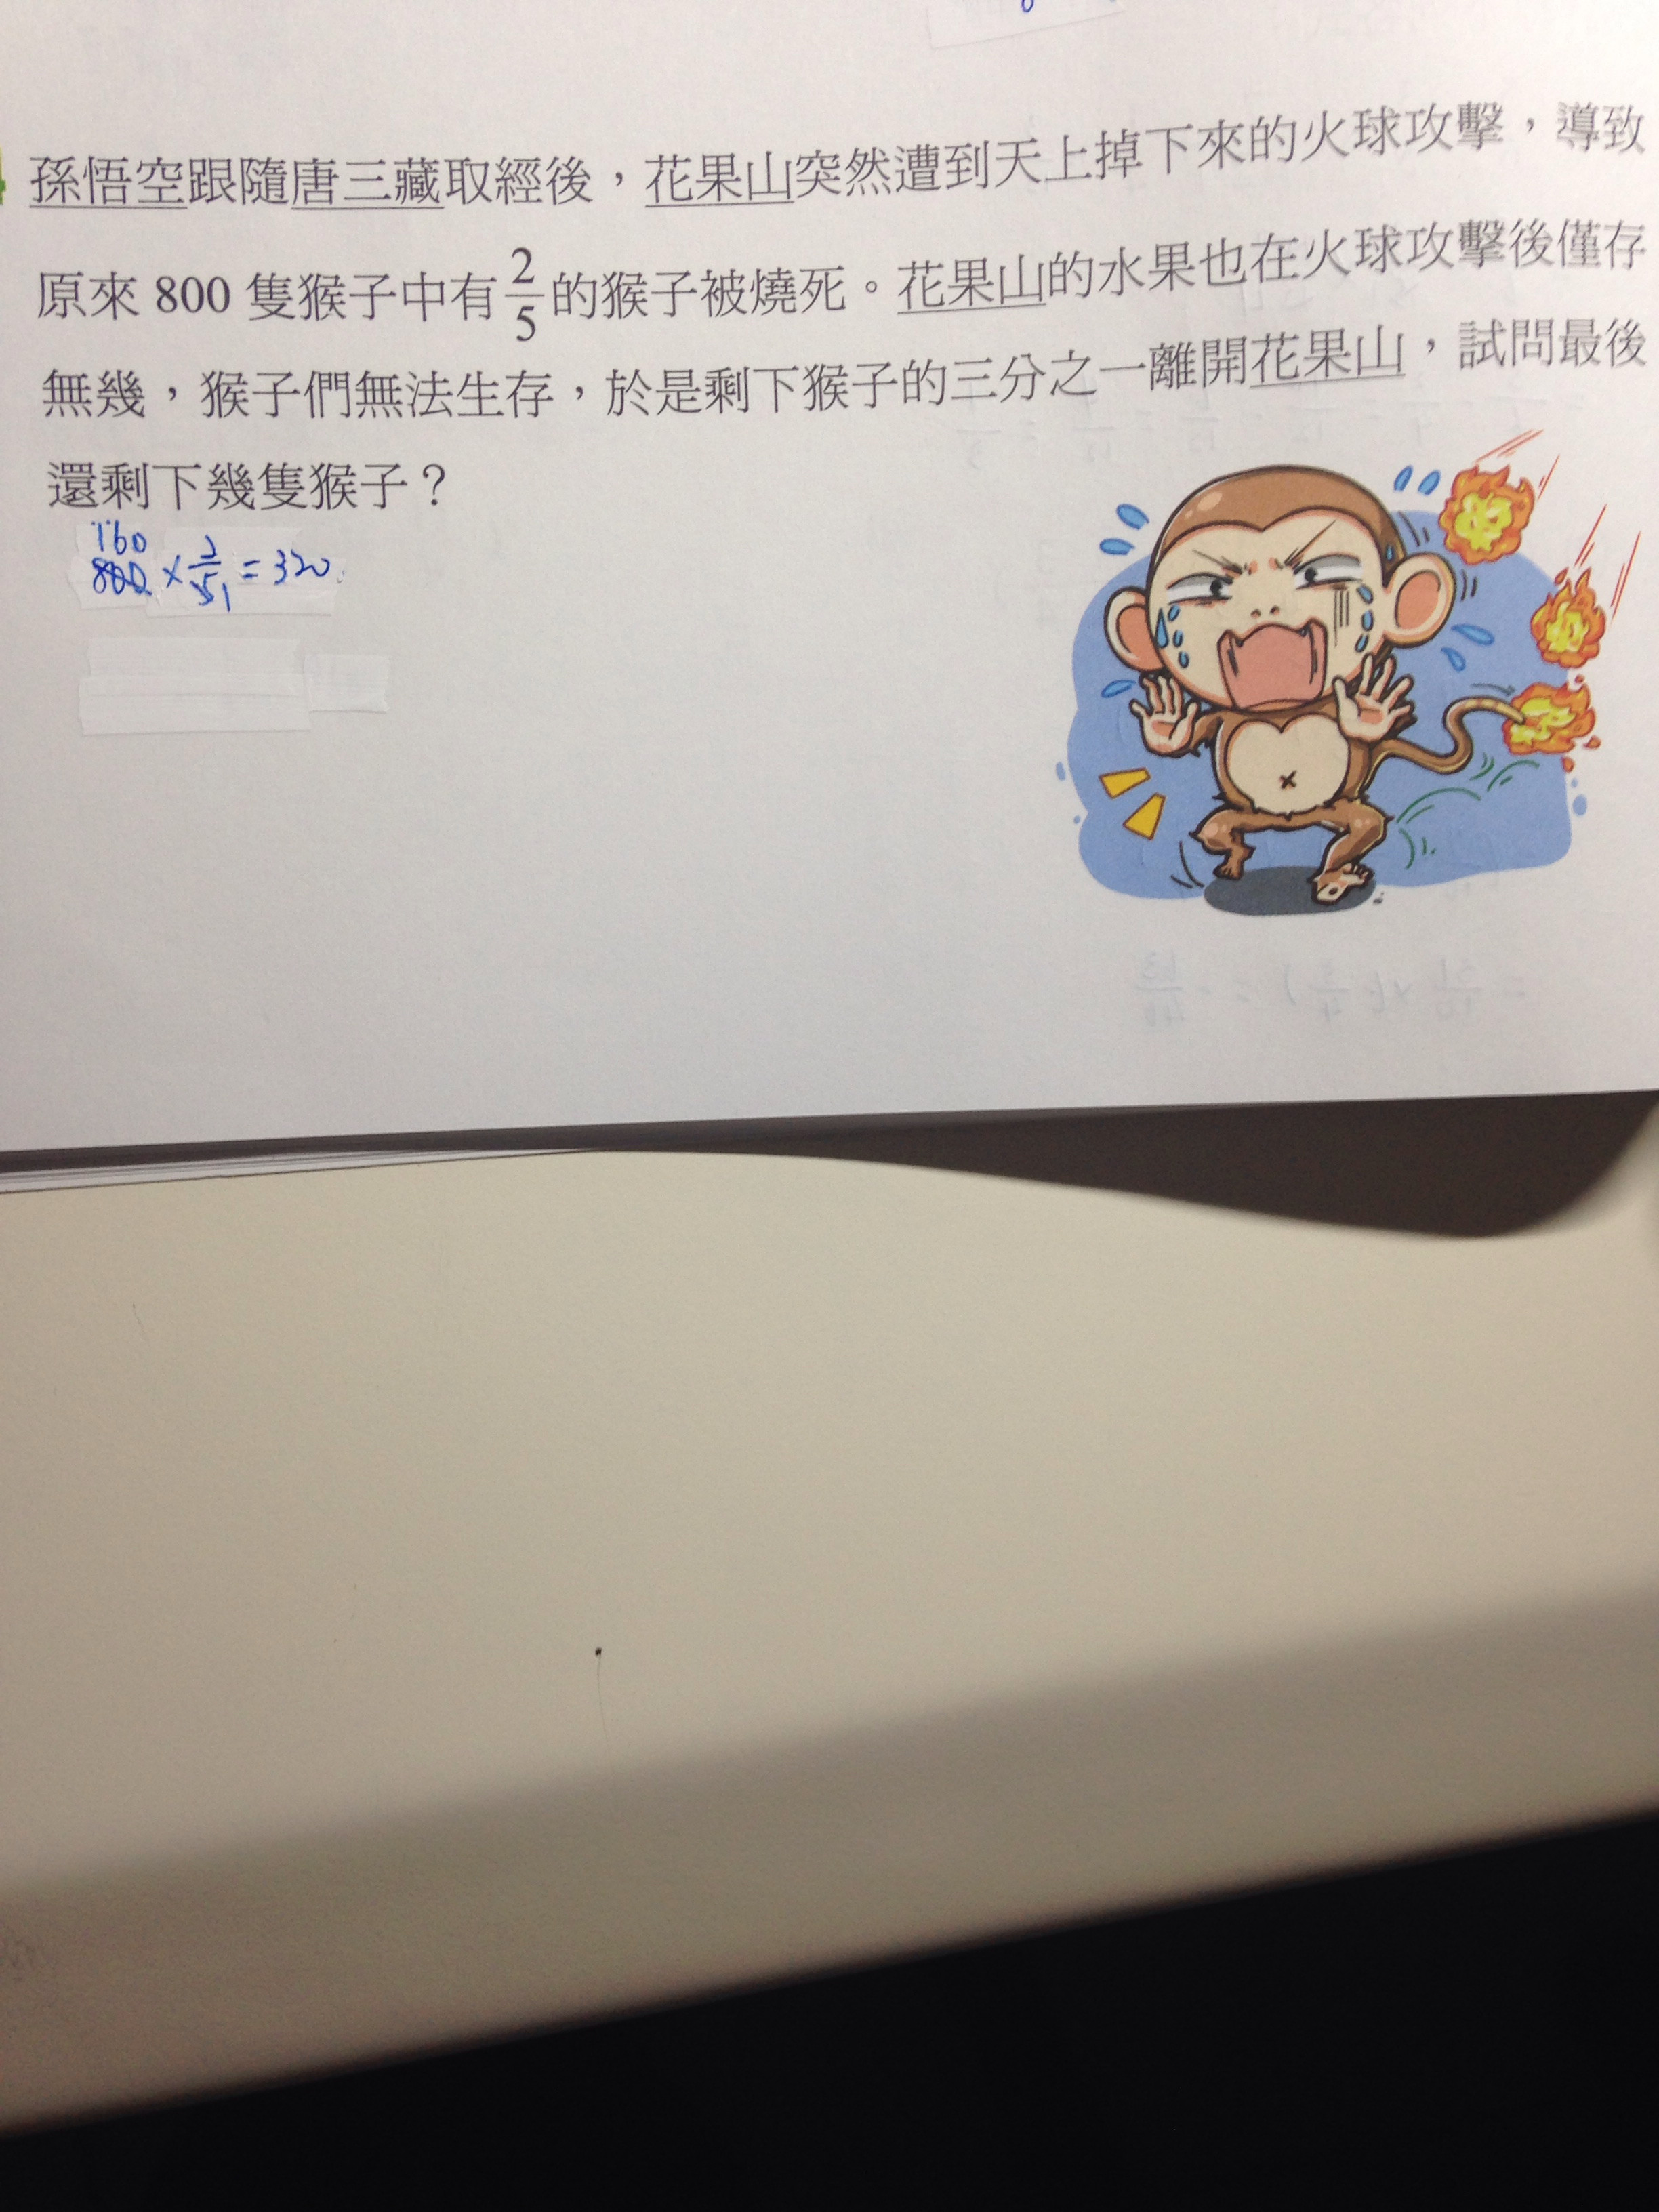 孫悟空跟隨唐三藏取經後，花果山突然遭到天上掉下來的火球攻擊，導致
原來 800 隻猴子中有 2/5 的猴子被燒死。花果山的水果也在火球攻擊後僅存
無幾，猴子們無法生存，於是剩下猴子的三分之一離開花果山，試問最後
還剩下幾隻猴子？
160
800 × 2/5 1 = 320